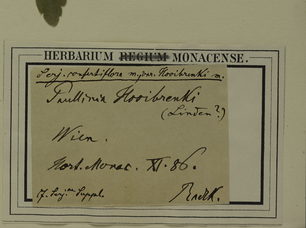 HERBARIUM REGIUM MONACENSE.
Serj. confertiflora m. var. Hooibrenki m.
Paullinia Hooibrenki
(Linden?)
Wien.
Hort. Monac. XI. 86.
cf. Serj. Suppl. Radlk.